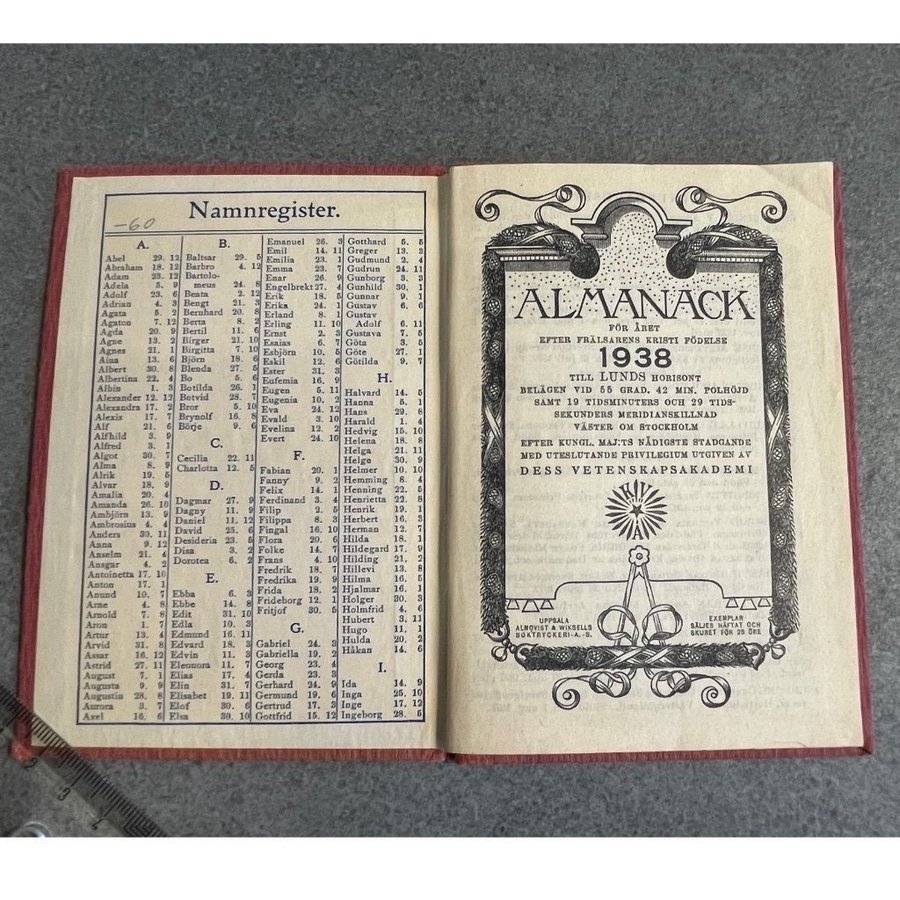 -60
Namnregister.
A.
Abel 29. 12
Abraham 18. 12
Adam 23. 12
Adela 5. 9
Adolf 23. 6
Adrian 4. 3
Agata 5. 2
Agaton 7. 12
Agda 20. 9
Agne 13. 2
Agnes 21. 1
Aina 13. 6
Albert 30. 8
Albertina 22. 4
Albin 1. 3
Alexander 12. 12
Alexandra 17. 2
Alexis 17. 7
Alf 21. 6
Alfhild 3. 9
Alfred 3. 1
Algot 30. 7
Alma 8. 9
Alrik 19. 5
Alvar 18. 9
Amalia 20. 4
Amanda 26. 10
Ambjörn 13. 9
Ambrosius 4. 4
Anders 30. 11
Anna 9. 12
Anselm 21. 4
Ansgar 4. 2
Antoinetta 17. 10
Anton 17. 1
Anund 10. 7
Arne 4. 8
Arnold 7. 8
Aron 1. 7
Artur 13. 4
Arvid 31. 8
Assar 16. 12
Astrid 27. 11
August 7. 1
Augusta 9. 9
Augustin 28. 8
Aurora 3. 7
Axel 16. 6
B.
Baltsar 29. 5
Barbro 4. 12
Bartolo-
meus 24. 8
Beata 2. 12
Bengt 21. 3
Bernhard 20. 8
Berta 8. 2
Bertil 11. 6
Birger 21. 10
Birgitta 7. 10
Björn 18. 6
Blenda 27. 5
Bo 5. 6
Botilda 26. 1
Botvid 28. 7
Bror 5. 10
Brynolf 16. 8
Börje 9. 6
C.
Cecilia 22. 11
Charlotta 12. 5
D.
Dagmar 27. 9
Dagny 11. 9
Daniel 11. 12
David 25. 6
Desideria 23. 5
Disa 3. 2
Dorotea 6. 2
E.
Ebba 6. 3
Ebbe 14. 8
Edit 31. 10
Edla 10. 3
Edmund 16. 11
Edvard 18. 3
Edvin 11. 3
Eleonora 11. 7
Elias 17. 4
Elin 31. 7
Elisabet 19. 11
Elof 30. 6
Elsa 30. 10
Emanuel 26. 3
Emil 14. 11
Emilia 23. 1
Emma 23. 7
Enar 26. 9
Engelbrekt 27. 4
Erik 18. 5
Erika 24. 1
Erland 8. 1
Erling 11. 10
Ernst 2. 3
Esaias 6. 7
Esbjörn 10. 5
Eskil 12. 6
Ester 31. 3
Eufemia 16. 9
Eugen 5. 11
Eugenia 10. 2
Eva 24. 12
Evald 3. 10
Evelina 12. 2
Evert 24. 10
F.
Fabian 20. 1
Fanny 9. 2
Felix 14. 1
Ferdinand 3. 4
Filip 2. 5
Filippa 8. 3
Fingal 16. 10
Flora 20. 6
Folke 14. 7
Frans 4. 10
Fredrik 18. 7
Fredrika 19. 9
Frida 18. 2
Frideborg 12. 1
Fritjof 30. 5
G.
Gabriel 24. 3
Gabriella 19. 2
Georg 23. 4
Gerda 23. 3
Gerhard 24. 9
Germund 19. 6
Gertrud 17. 3
Gottfrid 15. 12
Gotthard 5. 5
Greger 13. 3
Gudmund 2. 4
Gudrun 24. 11
Gunborg 3. 3
Gunhild 30. 1
Gunnar 9. 1
Gustav 6. 6
Gustav
Adolf 6. 11
Gustava 7. 5
Göta 3. 5
Göte 27. 1
Götilda 9. 7
H.
Halvard 14. 5
Hanna 5. 1
Hans 29. 8
Harald 1. 4
Hedvig 15. 10
Helena 18. 8
Helga 21. 11
Helge 30. 9
Helmer 10. 10
Hemming 8. 4
Henning 22. 5
Henrietta 22. 8
Henrik 19. 1
Herbert 16. 3
Herman 12. 7
Hilda 18. 1
Hildegard 17. 9
Hilding 21. 2
Hillevi 13. 8
Hilma 16. 5
Hjalmar 16. 1
Holger 30. 3
Holmfrid 4. 6
Hubert 3. 11
Hugo 11. 1
Hulda 20. 2
Håkan 14. 6
I.
Ida 14. 9
Inga 25. 10
Inge 17. 12
Ingeborg 28. 5
ALMANACK
FÖR ÅRET
EFTER FRÄLSARENS KRISTI FÖDELSE
1938
TILL LUNDS HORISONT
BELÄGEN VID 55 GRAD. 42 MIN. POLHÖJD
SAMT 19 TIDSMINUTERS OCH 29 TIDS-
SEKUNDERS MERIDIANSKILLNAD
VÄSTER OM STOCKHOLM
EFTER KUNGL. MAJ:TS NÅDIGSTE STADGANDE
MED UTESLUTANDE PRIVILEGIUM UTGIVEN AV
DESS VETENSKAPSAKADEMI
K V A
UPPSALA
ALMQVIST & WIKSELLS
BOKTRYCKERI-A.-B.
EXEMPLAR
SÄLJES HÄFTAT OCH
SKURET FÖR 25 ÖRE
2 3 4